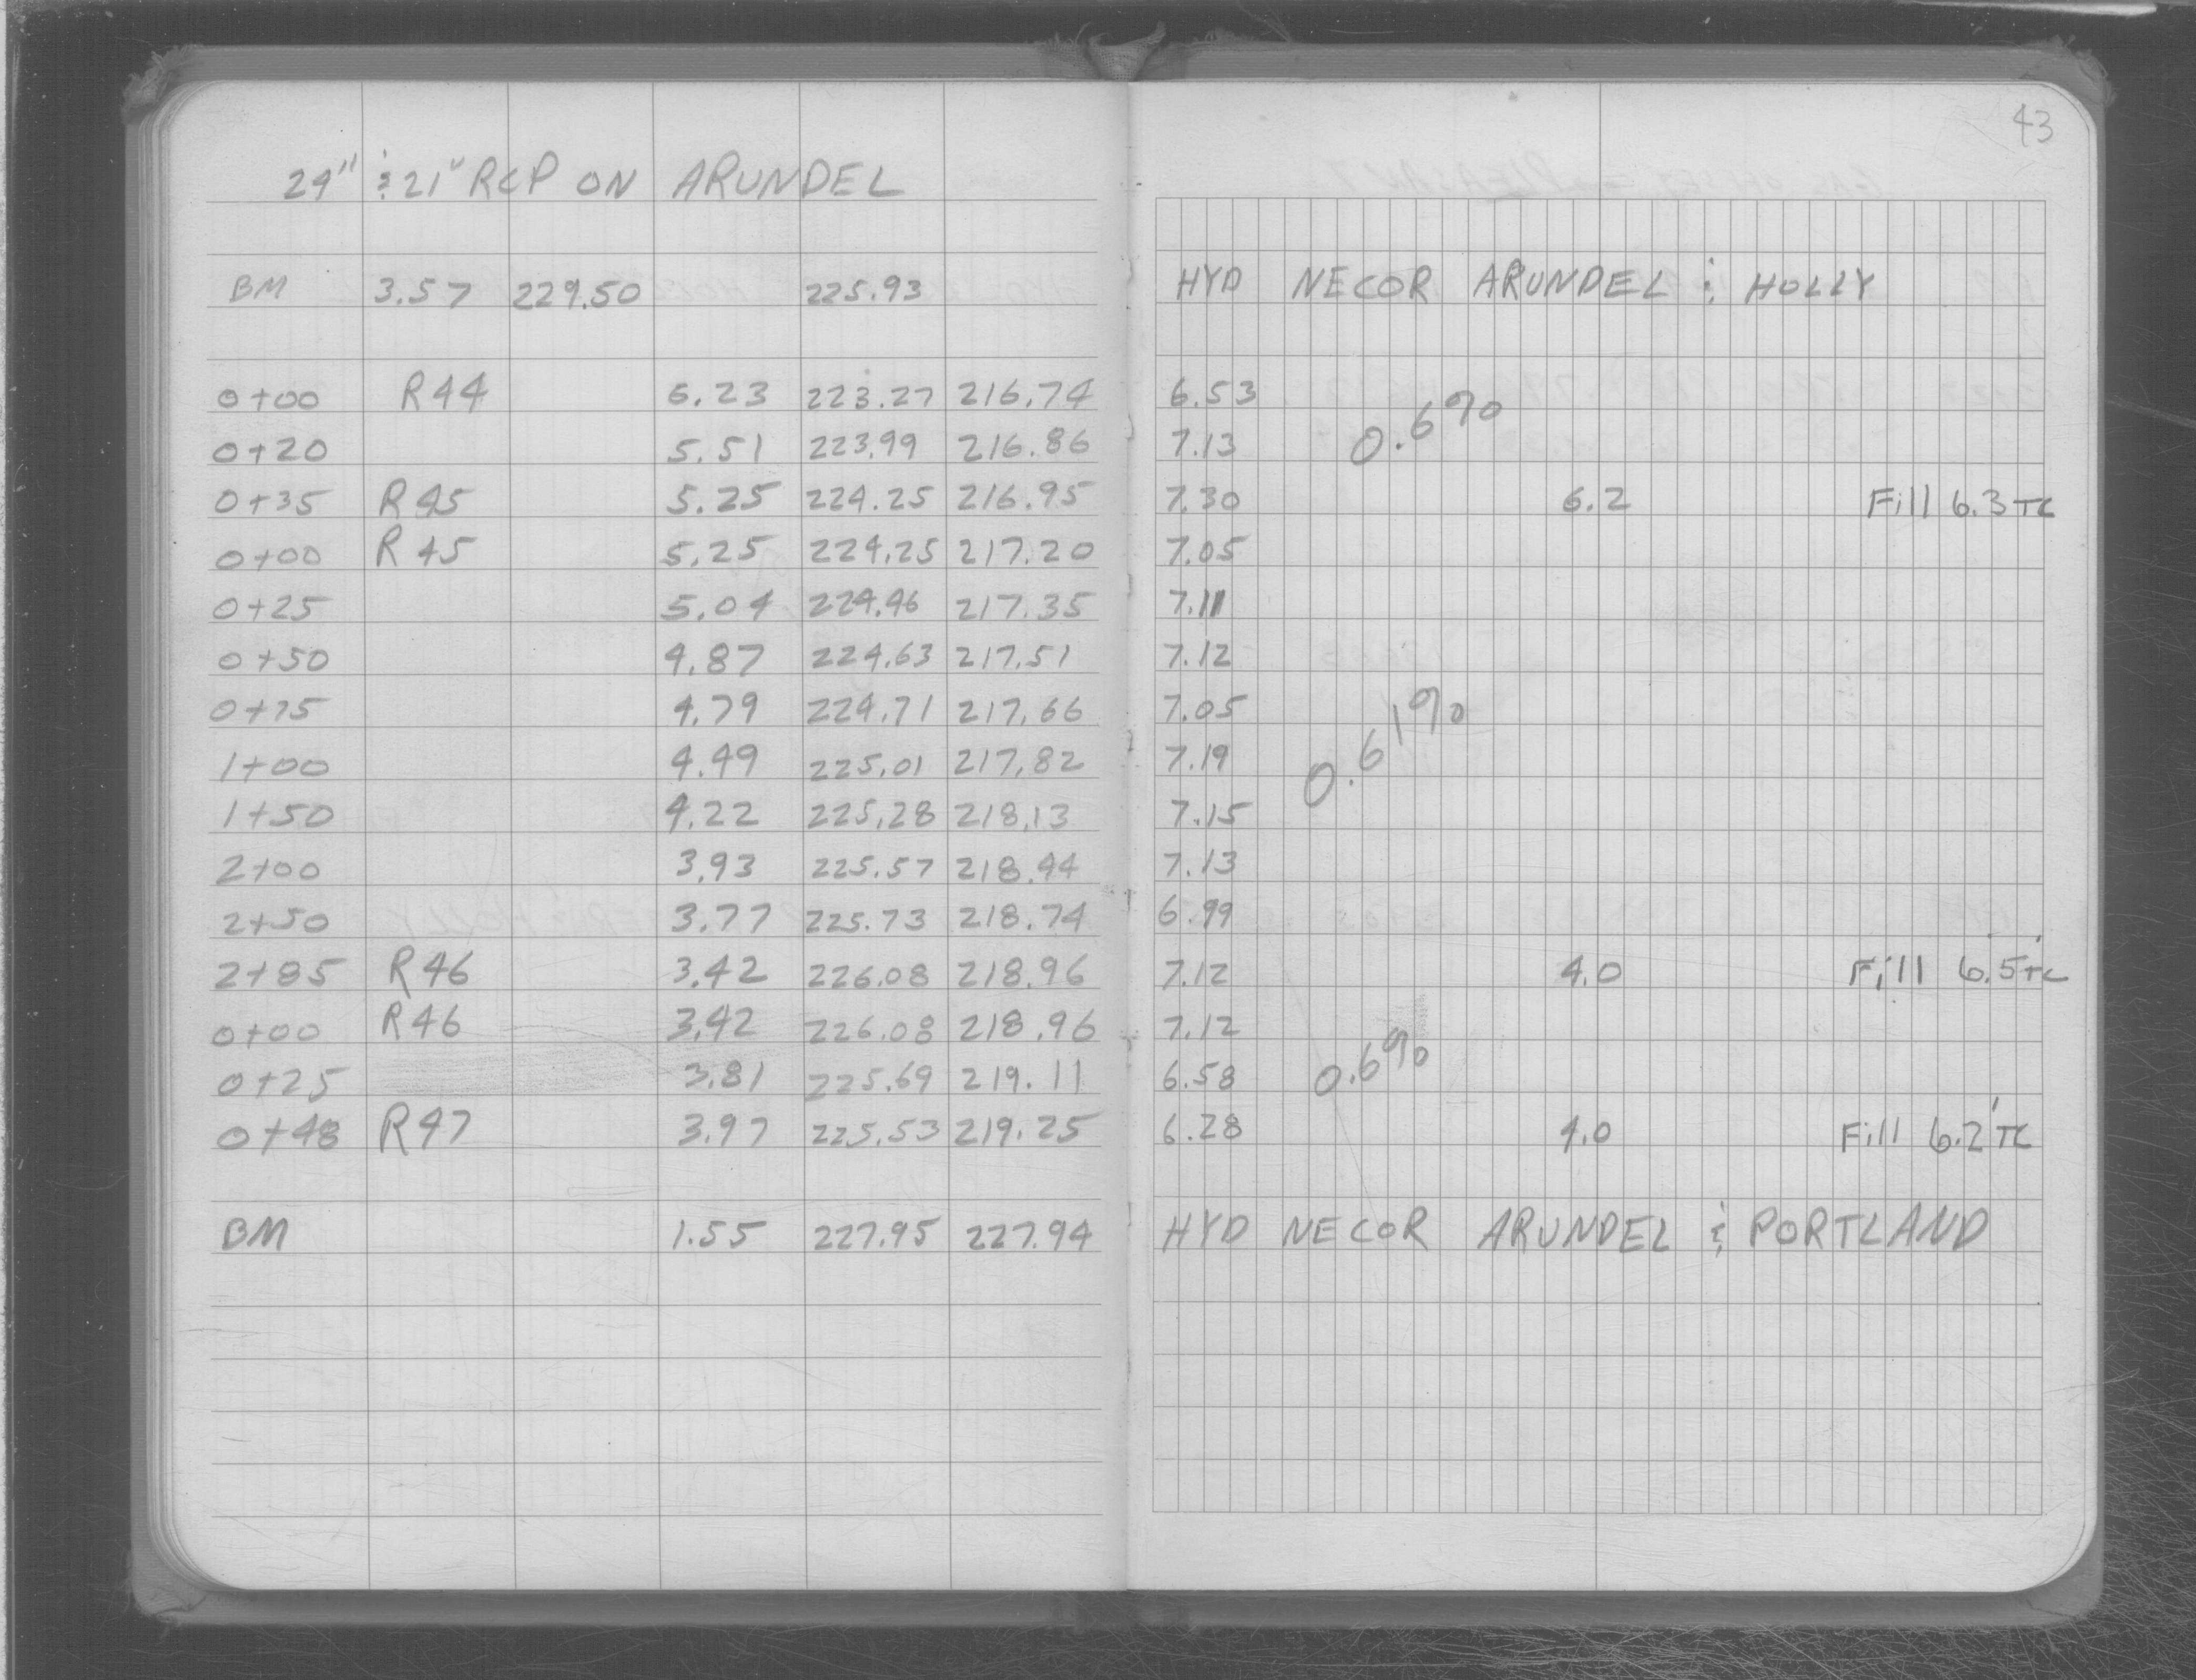 43
24" & 21" RCP ON ARUNDEL
BM 3.57 229.50 225.93 HYD NECOR ARUNDEL & HOLLY
0+00 R44 6.23 223.27 216.74 6.53 0.6%
0+20 5.51 223.99 216.86 7.13
0+35 R45 5.25 224.25 216.95 7.30 6.2 Fill 6.3 TC
0+00 R45 5.25 224.25 217.20 7.05
0+25 5.04 224.46 217.35 7.11
0+50 4.87 224.63 217.51 7.12
0+75 4.79 224.71 217.66 7.05 0.61%
1+00 4.49 225.01 217.82 7.19
1+50 4.22 225.28 218.13 7.15
2+00 3.93 225.57 218.44 7.13
2+50 3.77 225.73 218.74 6.99
2+85 R46 3.42 226.08 218.96 7.12 4.0 Fill 6.5' TC
0+00 R46 3.42 226.08 218.96 7.12
0+25 3.81 225.69 219.11 6.58 0.6%
0+48 R47 3.97 225.53 219.25 6.28 4.0 Fill 6.2' TC
BM 1.55 227.95 227.94 HYD NECOR ARUNDEL & PORTLAND